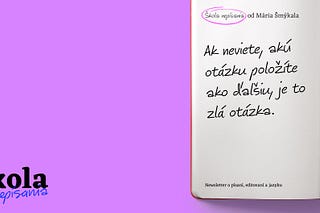 Škola nepísania od Mária Šmýkala
Ak neviete, akú
otázku položíte
ako ďalšiu, je to
zlá otázka.
Newsletter o písaní, editovaní a jazyku
kola
episania